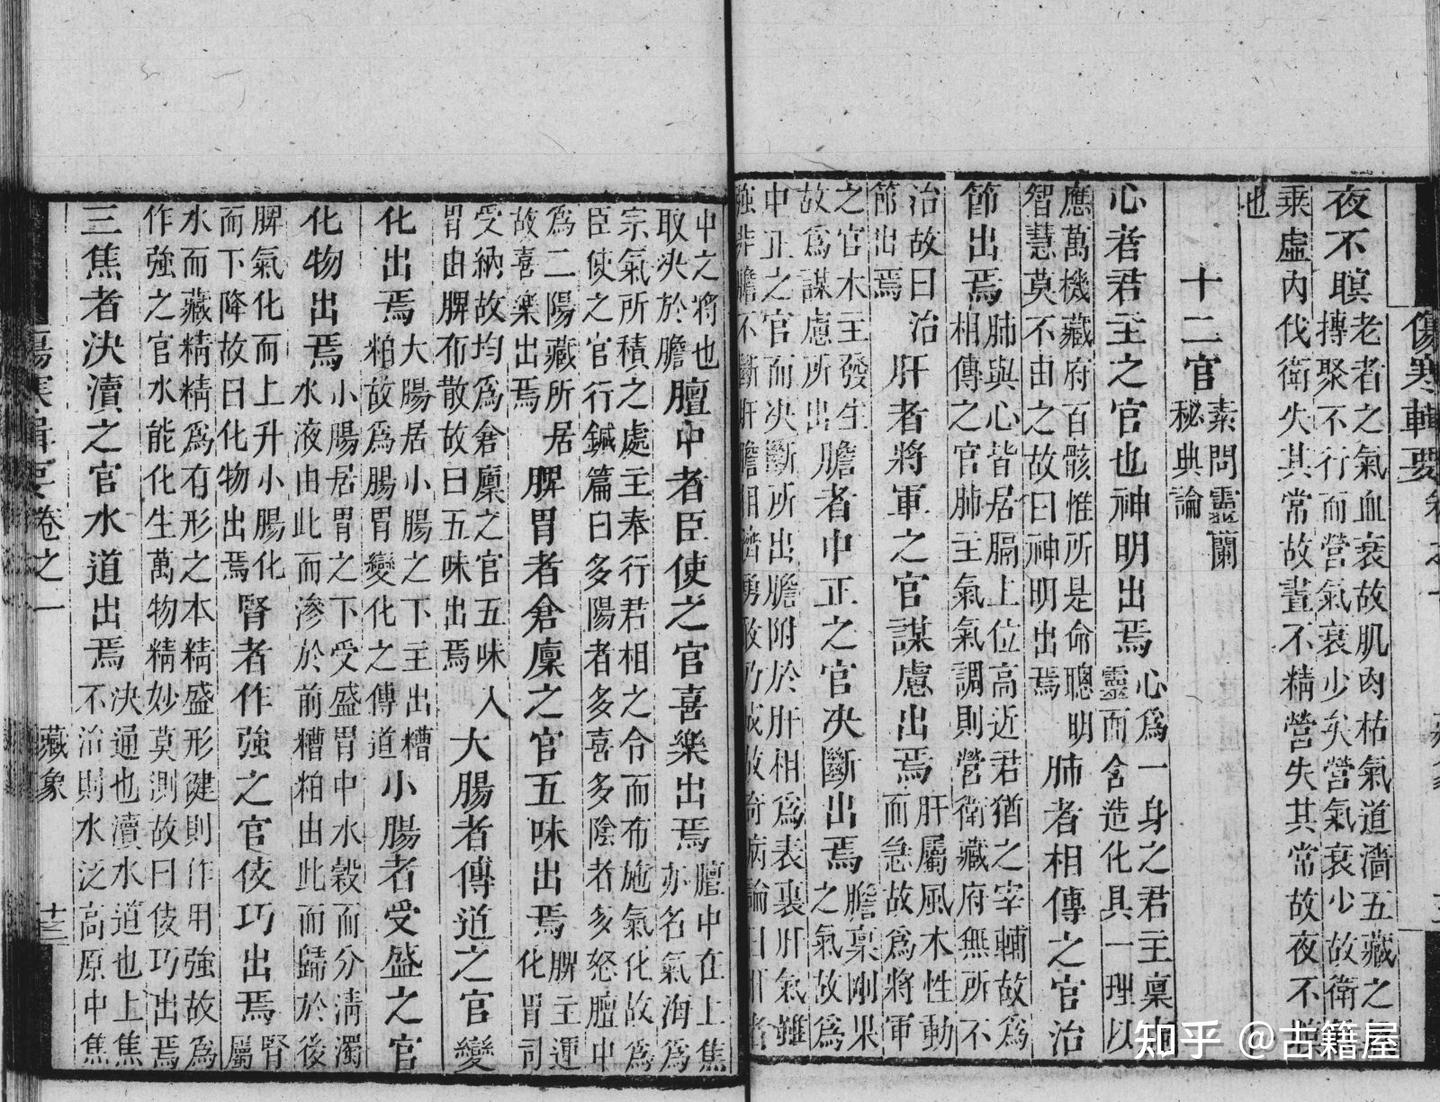 傷寒輯要
夜不瞑
老者之氣血衰故肌肉枯氣道濇五藏之
搏聚不行而營氣衰少矣營氣衰少故衛
乘虛內伐衛失其常故晝不精營失其常故夜不
也
十二官
素問靈蘭
秘典論
心者君主之官也神明出焉
心為一身之君主稟
靈而含造化具一理以
應萬機藏府百骸惟所是命聰明
智慧莫不由之故曰神明出焉
肺者相傳之官治
節出焉
肺與心皆居膈上位高近君猶之宰輔故為
相傳之官肺主氣氣調則營衛藏府無所不
治故曰治
節出焉
肝者將軍之官謀慮出焉
肝屬風木性動
而急故為將軍
之官木主發生
故為謀慮所出
膽者中正之官決斷出焉
膽稟剛果
之氣故為
中正之官而決斷所出膽附於肝相為表裏肝氣雖
強非膽不斷肝膽相濟勇敢乃成故奇病論曰肝者
中之將也
取決於膽
膻中者臣使之官喜樂出焉
膻中在上焦
亦名氣海為
宗氣所積之處主奉行君相之令而布施氣化故為
臣使之官行鍼篇曰多陽者多喜多陰者多怒膻中
為二陽藏所居
故喜樂出焉
脾胃者倉廩之官五味出焉
脾主運
化胃司
受納故均為倉廩之官五味入
胃由脾布散故曰五味出焉
大腸者傳道之官變
化出焉
大腸居小腸之下主出糟
粕故為腸胃變化之傳道
小腸者受盛之官
化物出焉
小腸居胃之下受盛胃中水穀而分清濁
水液由此而滲於前糟粕由此而歸於後
脾氣化而上升小腸化
而下降故曰化物出焉
腎者作強之官伎巧出焉
腎
屬
水而藏精精為有形之本精盛形健則作用強故為
作強之官水能化生萬物精妙莫測故曰伎巧出焉
三焦者決瀆之官水道出焉
決通也瀆水道也上焦
不治則水泛高原中焦
傷寒輯要卷之一
藏象
十三
知乎 @古籍屋